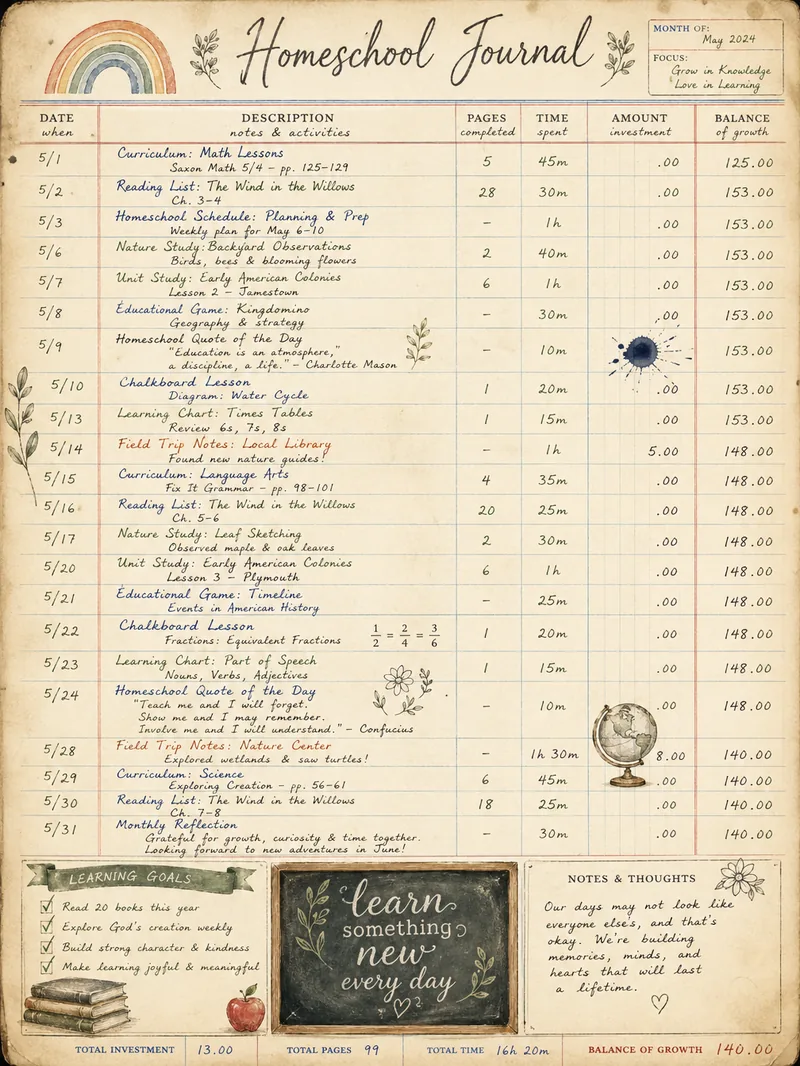 Homeschool Journal
MONTH OF:
May 2024
FOCUS:
Grow in Knowledge
Love in Learning
DATE DESCRIPTION PAGES TIME AMOUNT BALANCE
when notes & activities completed spent investment of growth
5/1 Curriculum: Math Lessons 5 45m .00 125.00
Saxon Math 5/4 – pp. 125–129
5/2 Reading List: The Wind in the Willows 28 30m .00 153.00
Ch. 3–4
5/3 Homeschool Schedule: Planning & Prep – 1h .00 153.00
Weekly plan for May 6–10
5/6 Nature Study: Backyard Observations 2 40m .00 153.00
Birds, bees & blooming flowers
5/7 Unit Study: Early American Colonies 6 1h .00 153.00
Lesson 2 – Jamestown
5/8 Educational Game: Kingdomino – 30m .00 153.00
Geography & strategy
5/9 Homeschool Quote of the Day – 10m 153.00
"Education is an atmosphere,"
a discipline, a life." – Charlotte Mason
5/10 Chalkboard Lesson 1 20m .00 153.00
Diagram: Water Cycle
5/13 Learning Chart: Times Tables 1 15m .00 153.00
Review 6s, 7s, 8s
5/14 Field Trip Notes: Local Library – 1h 5.00 148.00
Found new nature guides!
5/15 Curriculum: Language Arts 4 35m .00 148.00
Fix It Grammar – pp. 98–101
5/16 Reading List: The Wind in the Willows 20 25m .00 148.00
Ch. 5–6
5/17 Nature Study: Leaf Sketching 2 30m .00 148.00
Observed maple & oak leaves
5/20 Unit Study: Early American Colonies 6 1h .00 148.00
Lesson 3 – Plymouth
5/21 Educational Game: Timeline – 25m .00 148.00
Events in American History
5/22 Chalkboard Lesson 1 20m .00 148.00
Fractions: Equivalent Fractions 1/2 = 2/4 = 3/6
5/23 Learning Chart: Part of Speech 1 15m .00 148.00
Nouns, Verbs, Adjectives
5/24 Homeschool Quote of the Day – 10m .00 148.00
"Teach me and I will forget.
Show me and I may remember.
Involve me and I will understand." – Confucius
5/28 Field Trip Notes: Nature Center – 1h 30m 8.00 140.00
Explored wetlands & saw turtles!
5/29 Curriculum: Science 6 45m .00 140.00
Exploring Creation – pp. 56–61
5/30 Reading List: The Wind in the Willows 18 25m .00 140.00
Ch. 7–8
5/31 Monthly Reflection – 30m .00 140.00
Grateful for growth, curiosity & time together.
Looking forward to new adventures in June!
LEARNING GOALS
Read 20 books this year
Explore God's creation weekly
Build strong character & kindness
Make learning joyful & meaningful
learn
something
new
every day
NOTES & THOUGHTS
Our days may not look like
everyone else's, and that's
okay. We're building
memories, minds, and
hearts that will last
a lifetime.
TOTAL INVESTMENT 13.00 TOTAL PAGES 99 TOTAL TIME 16h 20m BALANCE OF GROWTH 140.00